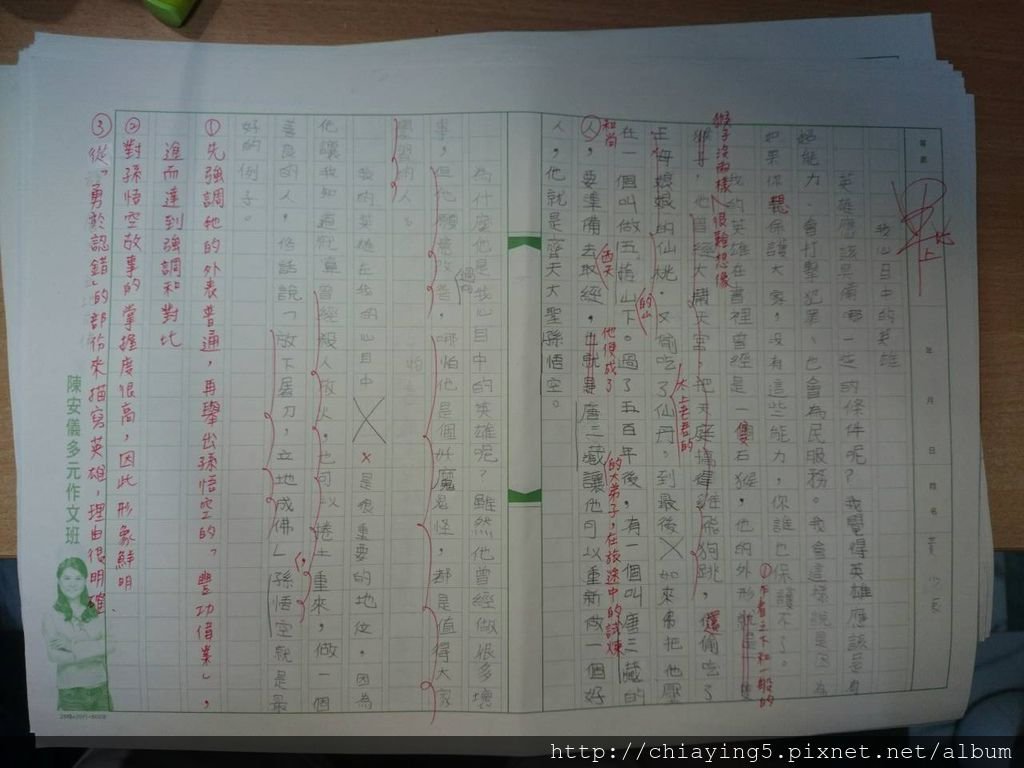 我心目中的英雄
英雄應該具備哪一些的條件呢?我覺得英雄應該是有
超能力、會打擊犯罪、也會為民服務。我會這樣說是因為
如果你想保護大家,沒有這些能力,你誰也保護不了。
我的英雄在書裡曾經是一隻石猴,他的外形就是一隻
猴,他曾經大鬧天宮,把天庭搞得雞飛狗跳,還偷吃了
王母娘娘的仙桃,又偷吃了仙丹。到最後如來佛把他壓
在一個叫做五指山下。過了五百年後,有一個叫唐三藏的
人,要準備去取經,也就是唐三藏讓他可以重新做一個好
人,他就是齊天大聖孫悟空。
為什麼他是我心目中的英雄呢?雖然他曾經做很多壞
事,但他願意改善,哪怕他是個妖魔鬼怪,都是值得大家
學習的人。
我的英雄在我的心目中是很重要的地位。因為
他讓我知道就算曾經殺人放火,也可以捲土重來,做一個
善良的人,俗話說「放下屠刀,立地成佛」孫悟空就是最
好的例子。
猴子沒兩樣,很難想像
和尚
西天
的山
他便成了
太上老君的
的大弟子,在旅途中的試煉
①先強調他的外表普通,再舉出孫悟空的「豐功偉業」,
進而達到強調和對比
②對孫悟空故事的掌握度很高,因此形象鮮明
③從「勇於認錯」的部份來描寫英雄,理由很明確
年 月 日 姓名
陳安儀多元作文班
http://chiaying5.pixnet.net/album